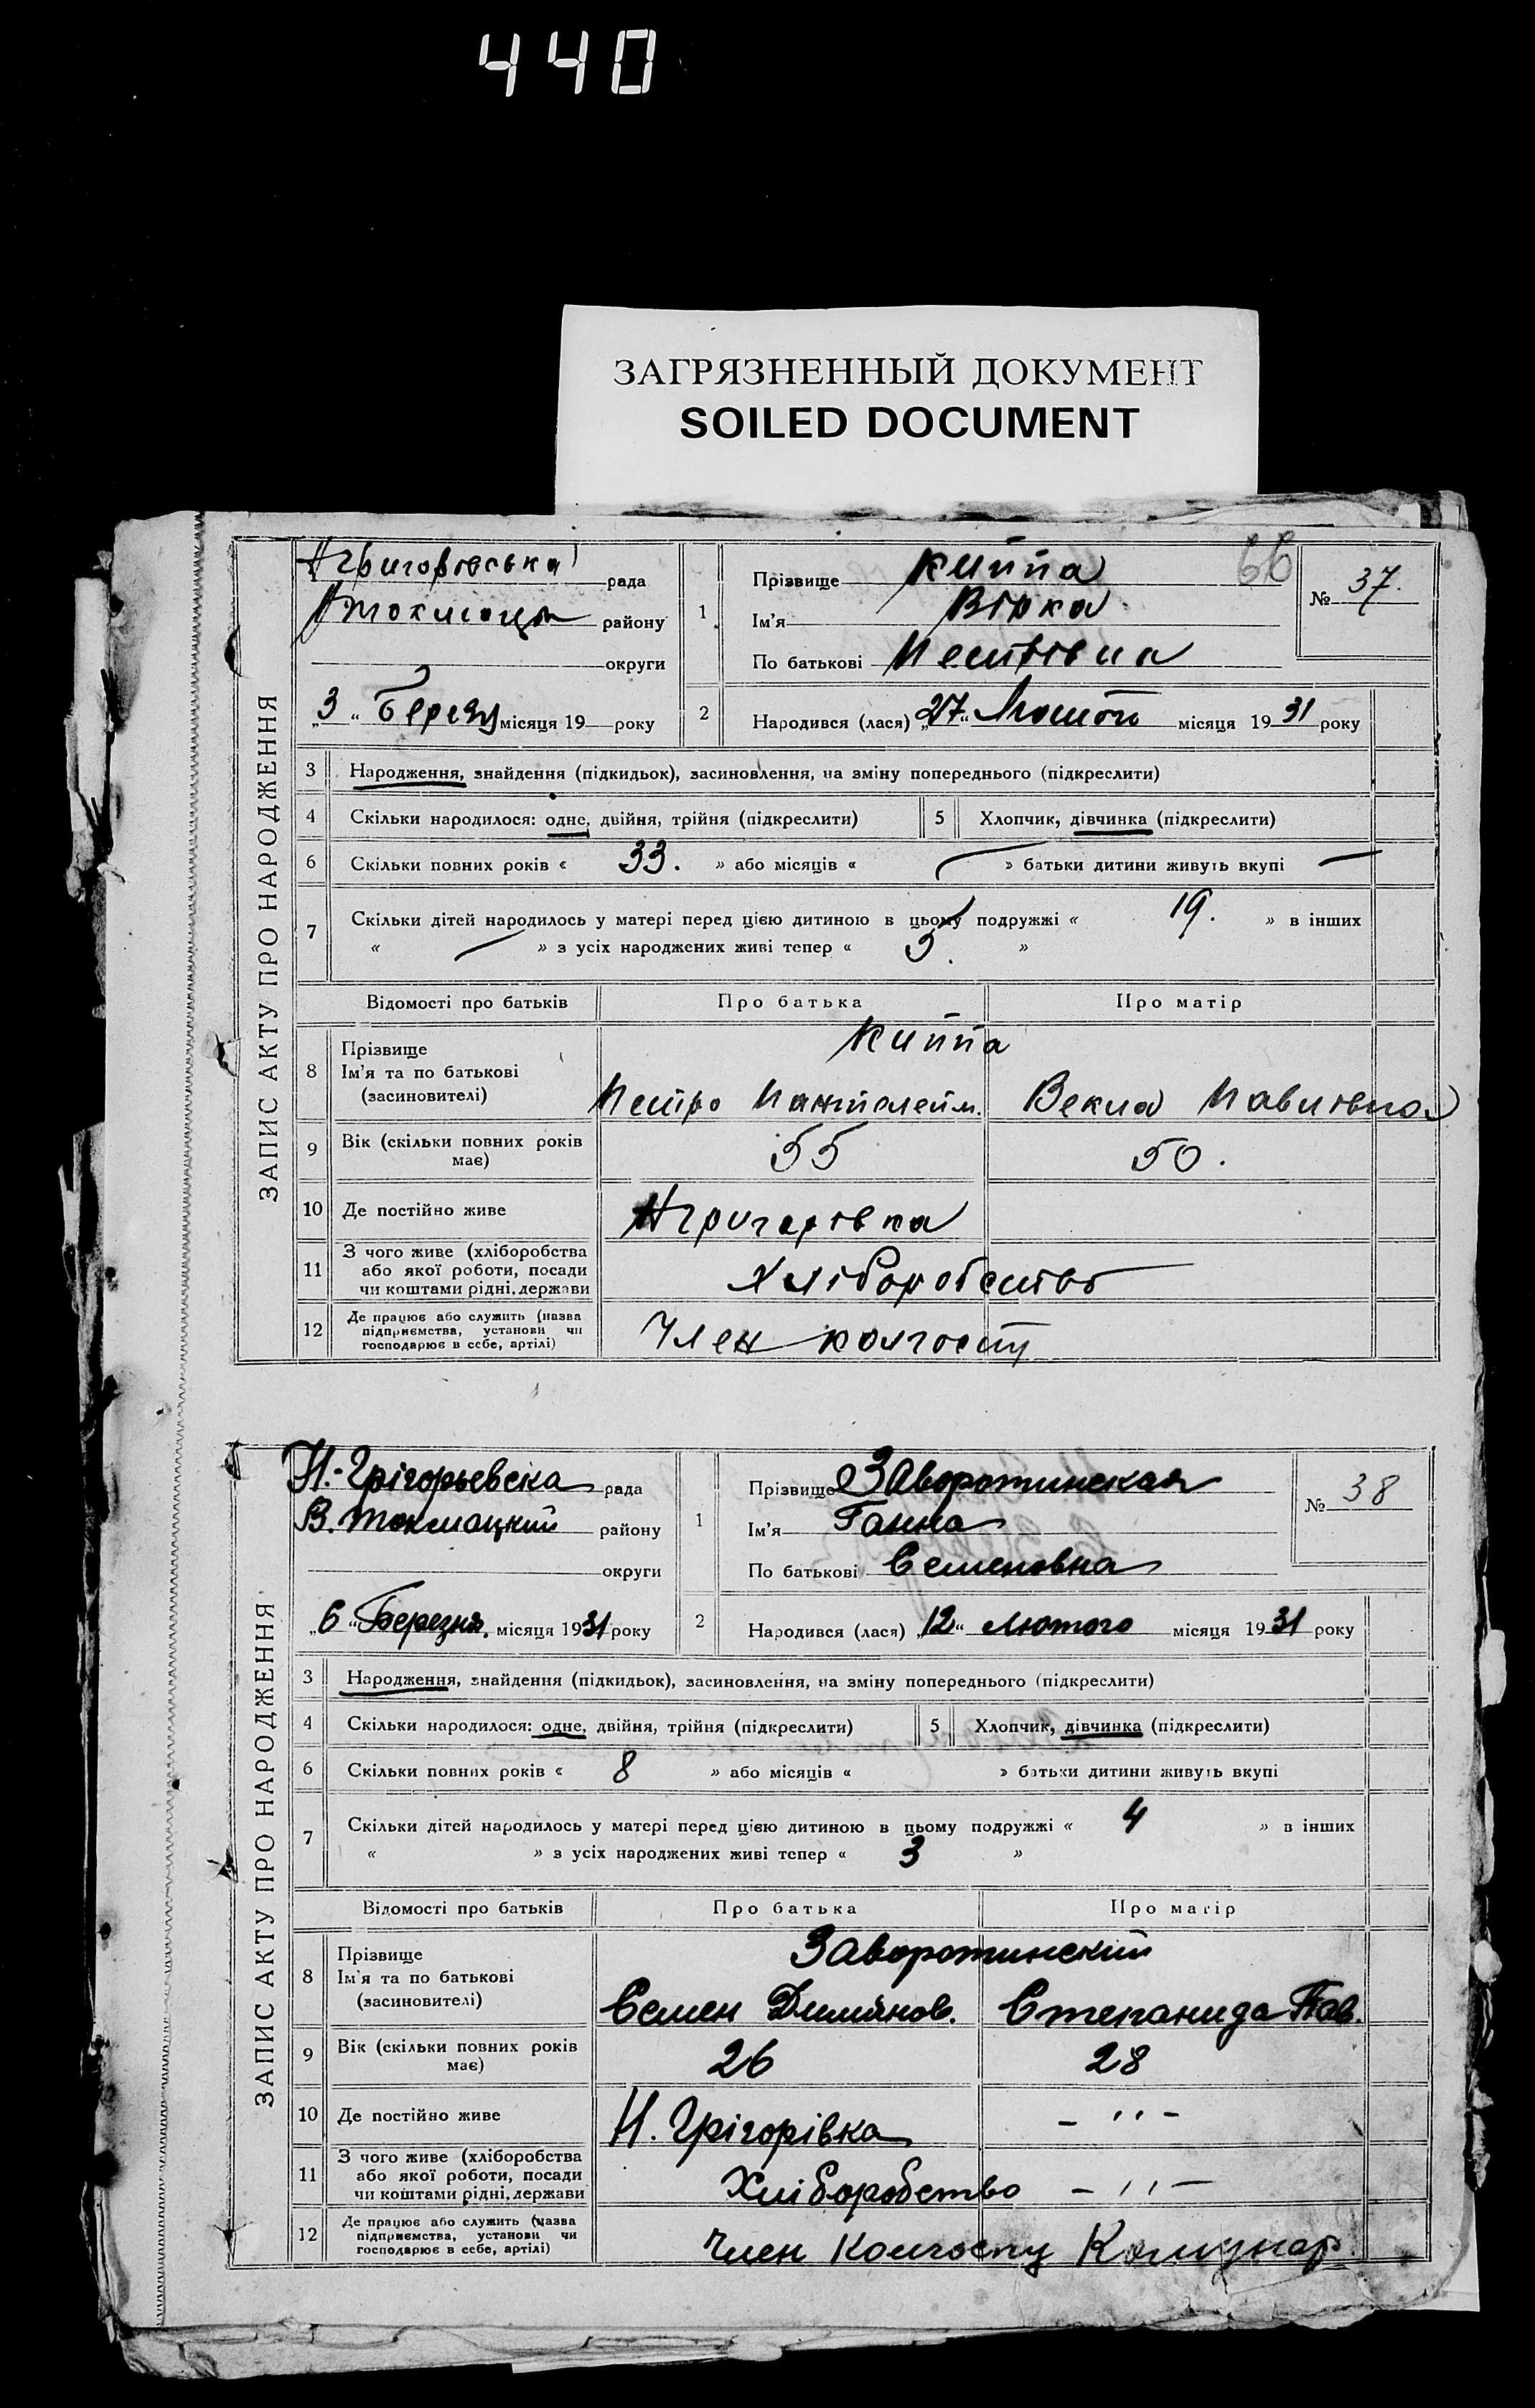 440
ЗАГРЯЗНЕННЫЙ ДОКУМЕНТ
SOILED DOCUMENT
66
ЗАПИС АКТУ ПРО НАРОДЖЕННЯ
Нгригоровська рада
Втокмацьк району
округи
„3“ Березн місяця 19 року
1
Прізвище Киппа
Ім'я Вірка
По батькові Петрівна
№ 37.
2 Народився (лася) „27“ Лютого місяця 1931 року
3 Народження, знайдення (підкидьок), засиновлення, на зміну попереднього (підкреслити)
4 Скільки народилося: одне, двійня, трійня (підкреслити) 5 Хлопчик, дівчинка (підкреслити)
6 Скільки повних років « 33. » або місяців « — » батьки дитини живуть вкупі —
7 Скільки дітей народилось у матері перед цією дитиною в цьому подружжі « 19. » в інших
« — » з усіх народжених живі тепер « 5. »
Відомості про батьків Про батька Про матір
8 Прізвище Киппа
Ім'я та по батькові
(засиновителі) Петро Пантелейм. Векла Павлівна
9 Вік (скільки повних років має) 55 50.
10 Де постійно живе Нгригорівка
11 З чого живе (хліборобства
або якої роботи, посади
чи коштами рідні, держави Хліборобство
12 Де працює або служить (назва
підприємства, установи чи
господарює в себе, артілі) Член колгоспу
ЗАПИС АКТУ ПРО НАРОДЖЕННЯ
Н.-Грігорьевска рада
В. Токмацкий району
округи
„6“ Березня. місяця 1931 року
1
Прізвище Заворотинская
Ім'я Ганна
По батькові Семеновна
№ 38
2 Народився (лася) „12“ Лютого місяця 1931 року
3 Народження, знайдення (підкидьок), засиновлення, на зміну попереднього (підкреслити)
4 Скільки народилося: одне, двійня, трійня (підкреслити) 5 Хлопчик, дівчинка (підкреслити)
6 Скільки повних років « 8 » або місяців « » батьки дитини живуть вкупі
7 Скільки дітей народилось у матері перед цією дитиною в цьому подружжі « 4 » в інших
« » з усіх народжених живі тепер « 3 »
Відомості про батьків Про батька Про матір
8 Прізвище Заворотинский
Ім'я та по батькові
(засиновителі) Семен Димянов. Степанида Пав.
9 Вік (скільки повних років має) 26 28
10 Де постійно живе Н. Грігорівка - '' -
11 З чого живе (хліборобства
або якої роботи, посади
чи коштами рідні, держави Хліборобство - '' -
12 Де працює або служить (назва
підприємства, установи чи
господарює в себе, артілі) Член Колгоспу Комунар.